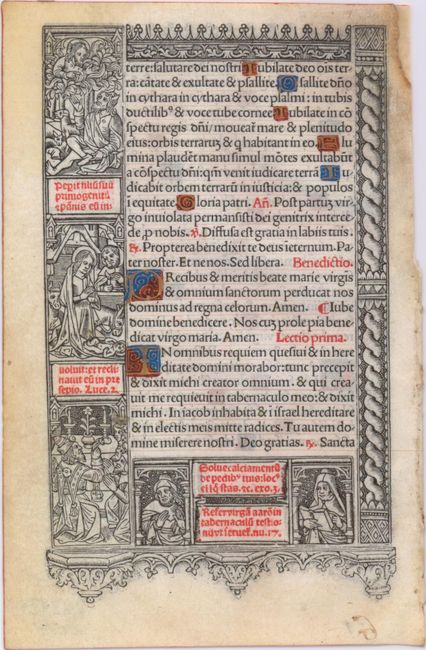 terre: salutare dei nostri Iubilate deo ois ter
ra: cãtate & exultate & psallite. Psallite dño
in cythara in cythara & voce psalmi: in tubis
ductilibꝰ & voce tube cornee. Iubilate in cõ
spectu regis dñi/ moueat̃ mare & plenitudo
eius: orbis terrarũ & q̃ habitant in eo. Flu
mina plaudẽt manu simul mõtes exultabũt
a cõspectu dñi: qm̃ venit iudicare terrã Iu
dicabit orbem terrarũ in iusticia: & populos
ĩ equitate. Gloria patri. Añ. Post partũ virgo
inuiolata permansisti dei genitrix interce
de p̱ nobis. ℣. Diffusa est gratia in labiis tuis.
℟. Propterea benedixit te deus ĩeternum. Pa
ter noster. Et ne nos. Sed libera. Benedictio.
PRecibus & meritis beate marie virgĩs
& omnium sanctorum perducat nos
dominus ad regna celorum. Amen. ¶ Iube
domine benedicere. Nos cuʒ prole pia bene
dicat virgo maria. Amen. Lectio prima.
IN omnibus requiem quesiui & in here
ditate domini morabor: tunc precepit
& dixit michi creator omnium. & qui crea
uit me requieuit in tabernaculo meo: & dixit
michi. In iacob inhabita & ĩ israel hereditare
& in electis meis mitte radices. Tu autem do
mine miserere nostri. Deo gratias. ℟. Sancta
Peperit filiũ suũ
primogenitũ
& pãnis eũ in:
uoluit: et recli
nauit eũ in pre
sepio. Luce. 2.
Solue calciamentũ
de pedibꝰ tuis: locꝰ
ei ĩ q̃ stas. &c. exo. 3.
Refer virgã aarõ in
tabernaculũ testio